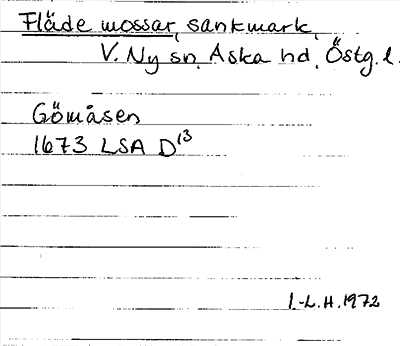 Fläde mossar, sankmark,
V. Ny sn. Aska hd. Östg. l.
Gömåsen
1673 LSA D13
I.-L. H. 1972